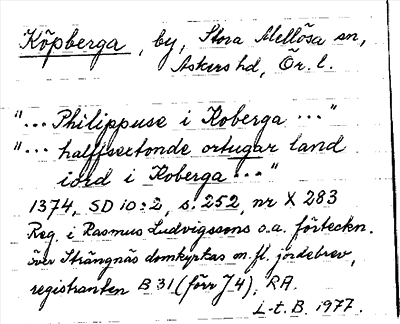 Köpberga, by, Stora Mellösa sn,
Askers hd, Ör. l.
"... Philippuse i Koberga ..."
"... halffsextonde ortugar land
iord i Koberga ..."
1374, SD 10:2, s. 252, nr X 283
Reg. i Rasmus Ludvigssons o.a. förteckn.
över Strängnäs domkyrkas m.fl. jordebrev,
registranten B 31 (förr J 4), RA.
L-t. B. 1977.